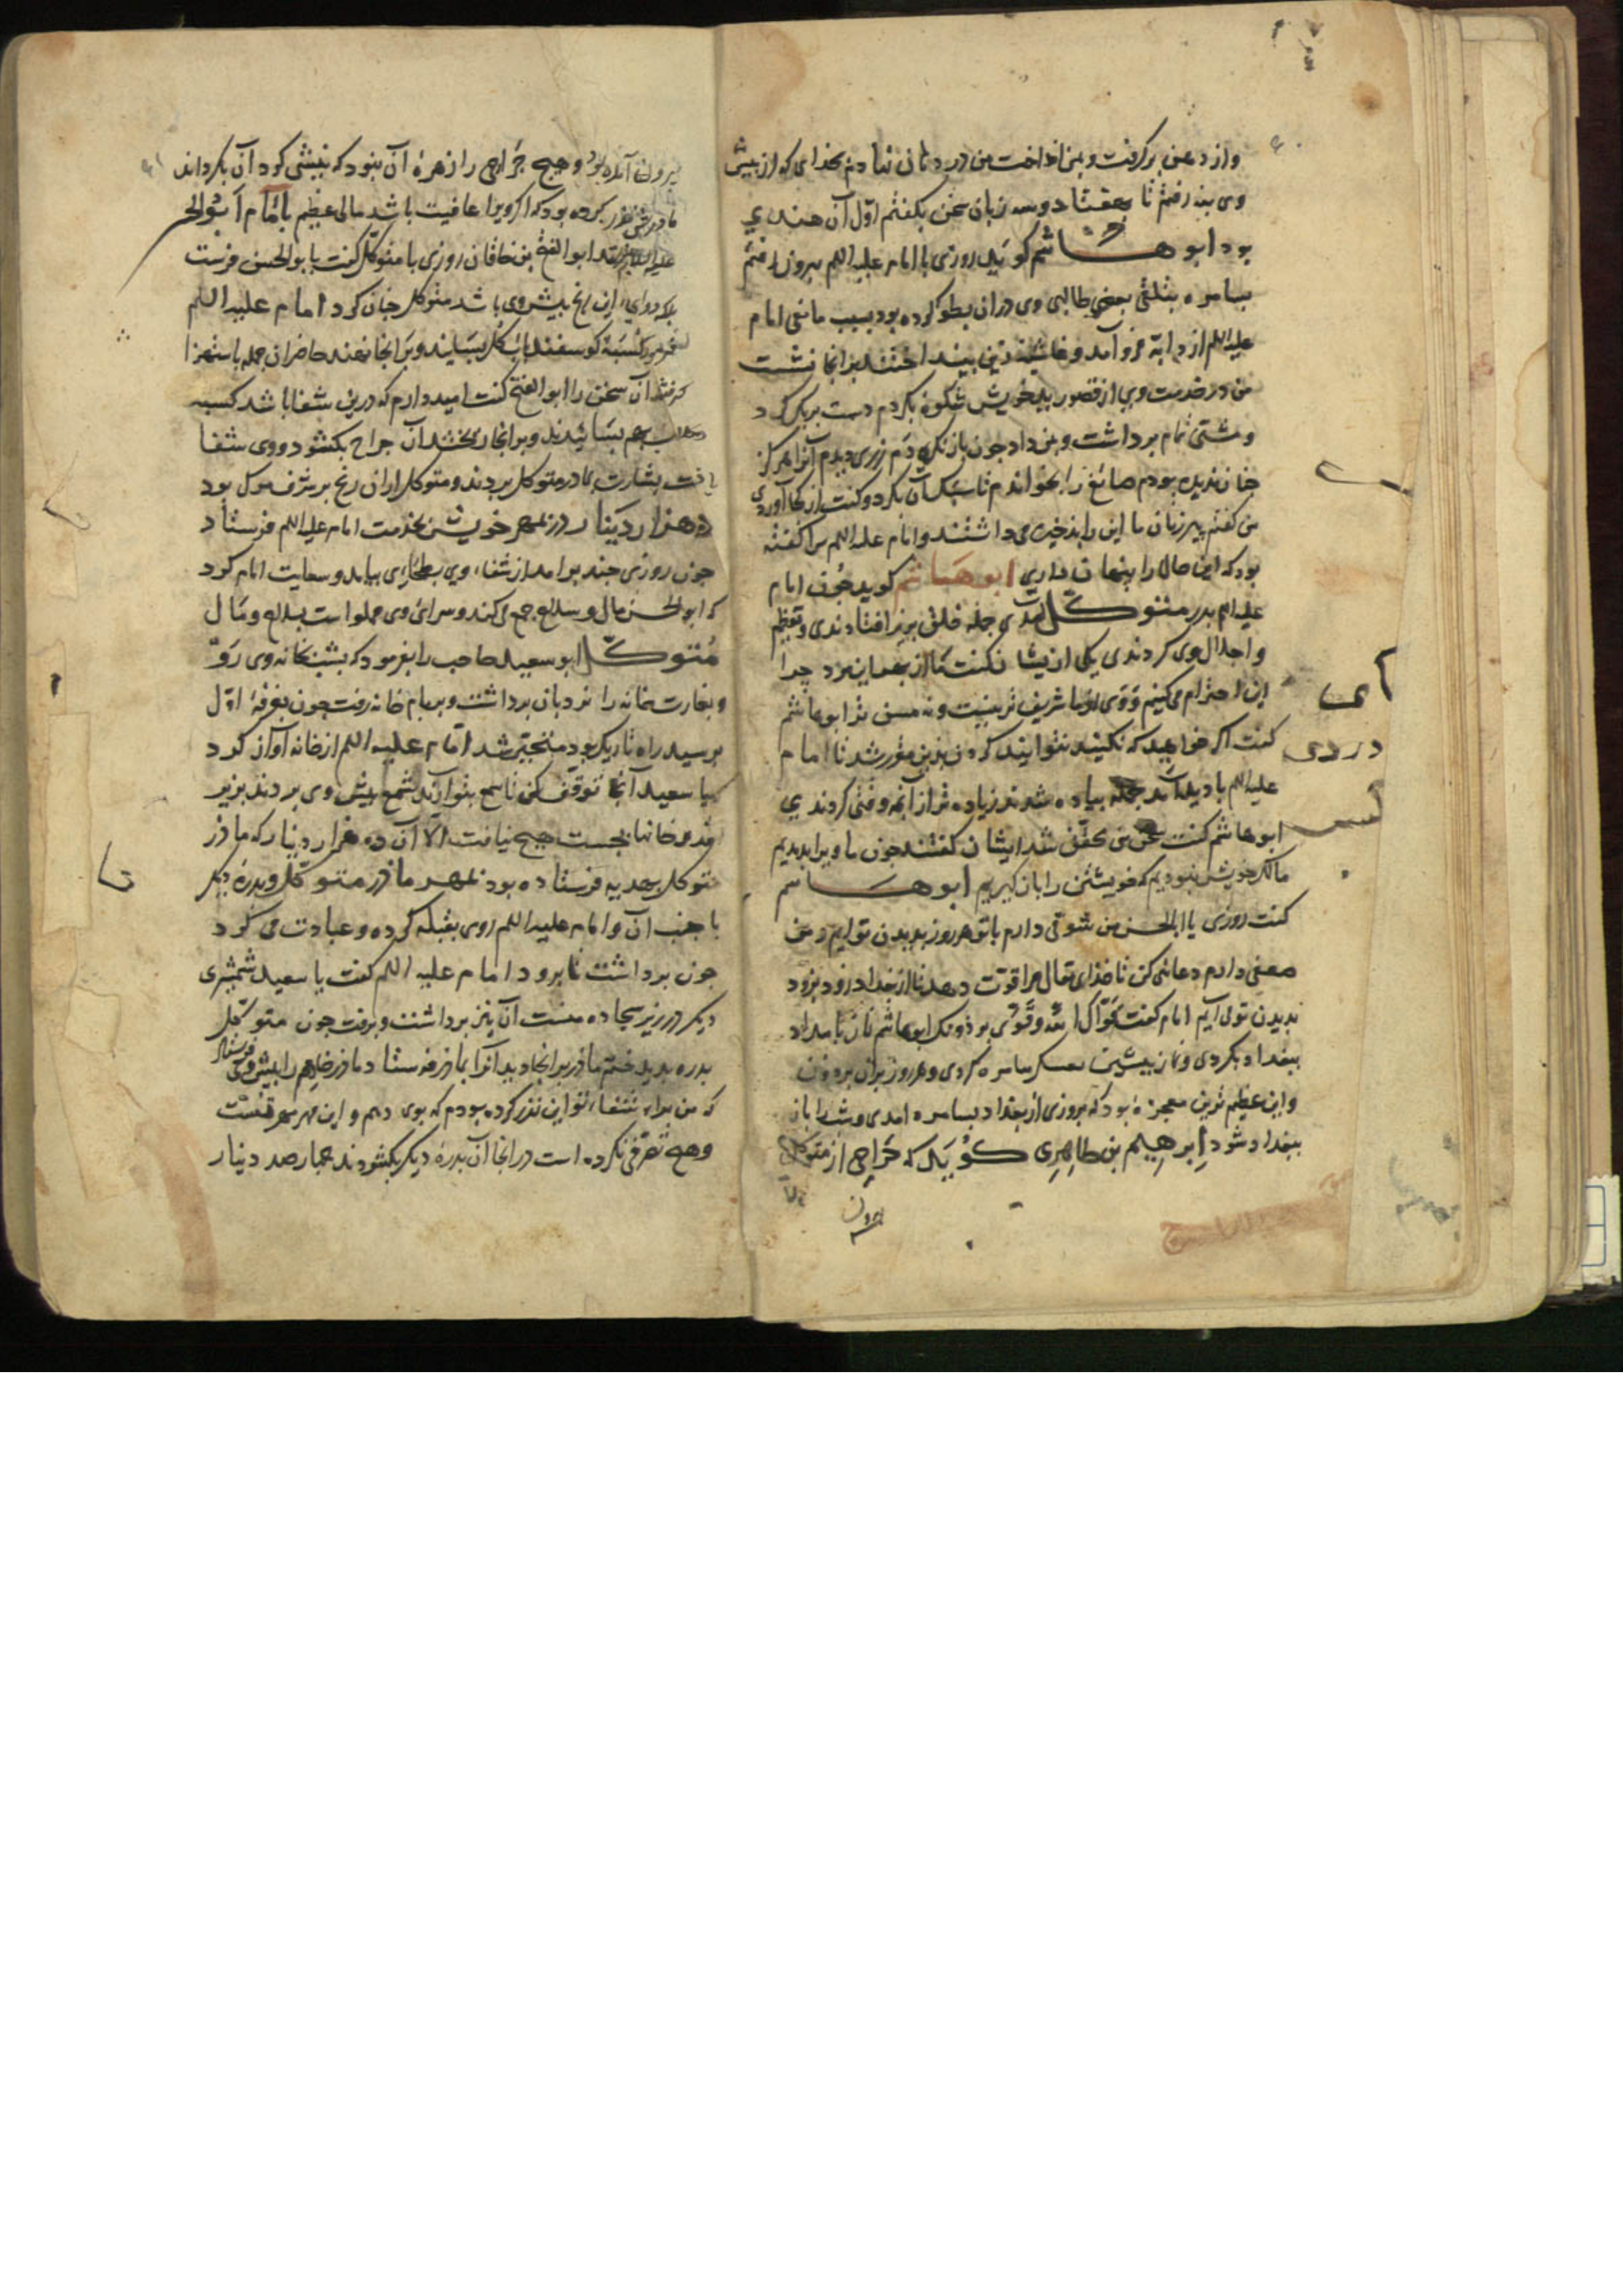 واز دهن برکرفت و بمن انداخت من در دهان نهادم بخدای که از پیش
وی بنه رفتم تا بهفتاد وسه زبان سخن بکفتم اوّل آن هندی
بود ابو هاشم کوید روزی با امام علیه اللم بیرون رفتم
بسامره بتلقی بعضی طالبی وی دران بطو کرده بود بسبب مانعی امام
علیه اللم از دابّه فرو آمد و غاشیه زین بینداختند برانجا نشست
من در خدمت وی از قصور ید خویش شکوه بکردم دست بریک کرد
و مشتی تمام برداشت و بمن داد چون باز نکریدم زری دیدم آنرا هرکز
چنان ندیده بودم صائغ را بخواندم تا سبک آن بکرد و کفت از کجا آوردی
من کفتم پیرزنان ما این را ذخیره می داشتند و امام علیه اللم مرا کفته
بود که این حال را پنهان داری ابو هاشم کوید چون امام
علیه اللم بدر متوکل آمدی جمله خلق بزیر افتادندی و تعظیم
و اجلال وی کردندی یکی از یشان کفت ما از بعد این مرد چرا
این احترام می کنیم و وی از ما شریف تر نیست و نه مسن تر ابو هاشم
کفت اکر خواهید که نکنید نتوانید کردن بدین مقرر شد تا امام
علیه اللم با دید آمد جمله پیاده شدند زیاده تر از آنچه وقتی کردندی
ابو هاشم کفت سخن من محقّق شد ایشان کفتند چون ما ویرا بدیدیم
مالک خویش نبودیم که خویشتن را باز کیریم ابو هاشم
کفت روزی یا ابا الحسن من شوقی دارم باتو هر روز بدیدن تو ایم و من
ضعفی دارم دعائی کن تا خدای تعالی مرا قوّت دهد تا از بغداد زود بزود
بدیدن تو می آیم امام کفت قوّاک الله وقوّی برذونک ابو هاشم نماز بامداد
ببغداد بکردی و نماز پیشین بعسکر سامره کردی و هر روز بران برذون
و این عظیم ترین معجزه بود که بروزی از بغداد بسامره امدی و شب را باز
ببغداد شود ابرهیم بن طاهری کوید که خراجی از متوکل
بیرون
بیرون آمده بود و هیچ جرّاحی را زهرهٔ آن نبود که نیشی کرد آن بکرداند
مادرش نذر کرده بود که اکر ویرا عافیت باشد مالی عظیم بامام ابو الحسن
علیه السلام فرستد ابو الفتح بن خاقان روزی با متوکل کفت بابو الحسن فرست
دوای این رنج پیش وی باشد متوکل چنان کرد امام علیه اللم
فرمود کسبهٔ کوسفند باب کل بسایند و بر انجا نهند حاضران جمله باستهزا
کرفتند آن سخن را ابو الفتح کفت امید دارم که درین شفا باشد کسبه
بهم بسائیدند و بر انجا آن جراح بکشود و وی شفا
یافت بشارت بمادر متوکل بردند و متوکل ازان رنج بر شرف موکل بود
ده هزار دینار زر بمهر خویش بخدمت امام علیه اللم فرستاد
چون روزی چند برامد از شفاء وی بطحاری بیامد و سعایت امام کرد
که ابو الحسن مال و سلاح جمع می کند و سرای وی مملو است بسلاح و مال
متوکل ابو سعید حاجب را بفرمود که بشب بخانه وی رو
و بغارت خانه را نردبان برداشت و ببام خانه رفت چون بغرفهٔ اوّل
برسید راه تاریک بود متحیّر شد امام علیه اللم از خانه آواز کرد
یا سعید آنجا توقف کن تا شمع بتو آرند شمع پیش وی بردند بزیر
خانها بجست هیچ نیافت الّا آن ده هزار دینار که مادر
متوکل بهدیه فرستاده بود بمهر مادر متوکل و بدرهٔ دیکر
با جنب آن و امام علیه اللم روی بقبله کرده و عبادت می کرد
چون برداشت تا برود امام علیه اللم کفت یا سعید شمشیری
دیکر در زیر سجاده منست آن نیز برداشت و برفت چون متوکل
بدره بدید ختم مادر برانجا دید آنرا بمادر فرستاد مادر خادم را پیش وی فرستاد
که من براء شفاء تو این نذر کرده بودم که بوی دهم و این مهر منست
و هیچ تصرّفی نکرده است در انجا آن بدرهٔ دیکر بکشودند چهار صد دینار